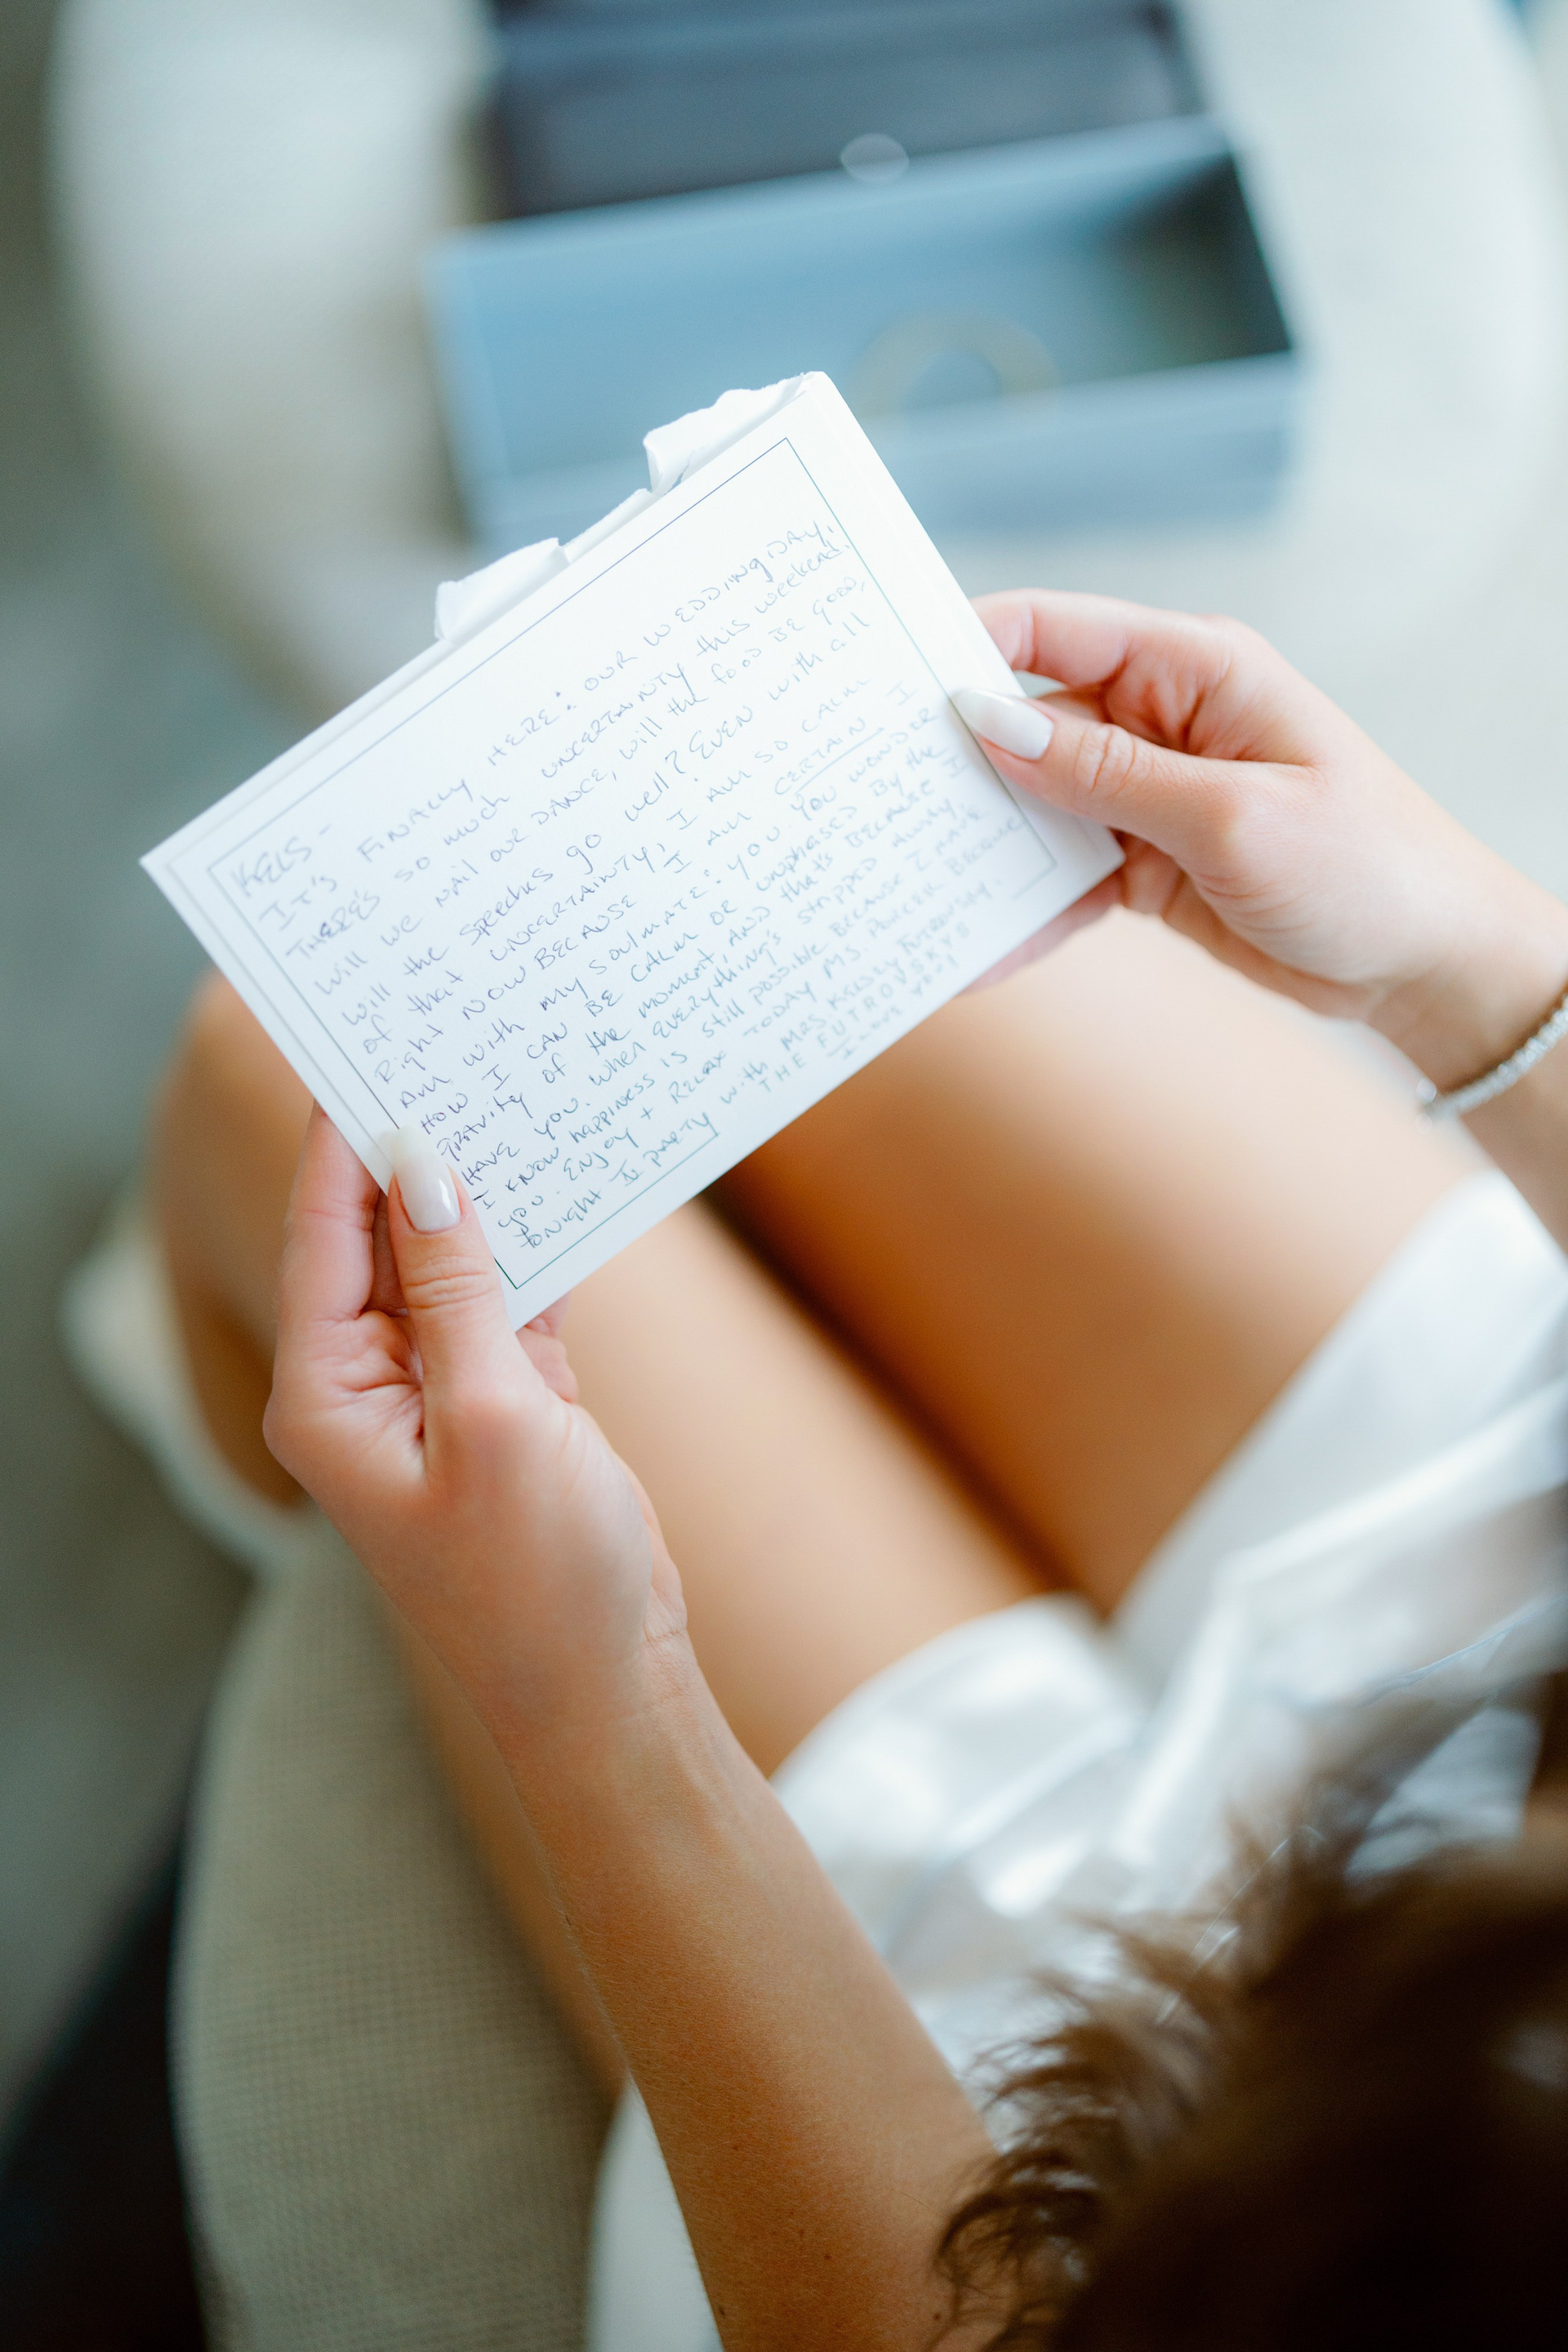 KELS-
IT'S FINALLY HERE: OUR WEDDING DAY.
THERE'S SO MUCH UNCERTAINTY this weekend.
Will we nail our DANCE, will the food BE GOOD,
will the speeches go well? EVEN with all
of that UNCERTAINTY, I AM SO CALM
Right NOW BECAUSE I AM CERTAIN I
AM with my soulmate: you. You WONDER
HOW I CAN BE CALM OR unphased By the
gravity of the moment, AND that's BECAUSE I
HAVE you. When EVERYthing's stripped away,
I KNOW happiness is still possible BECAUSE I have
you. Enjoy + RELAX TODAY MS. BECAUSE
tonight I party with MRS. KELSEY
THE FUTROVSKYS
I LOVE YOU!